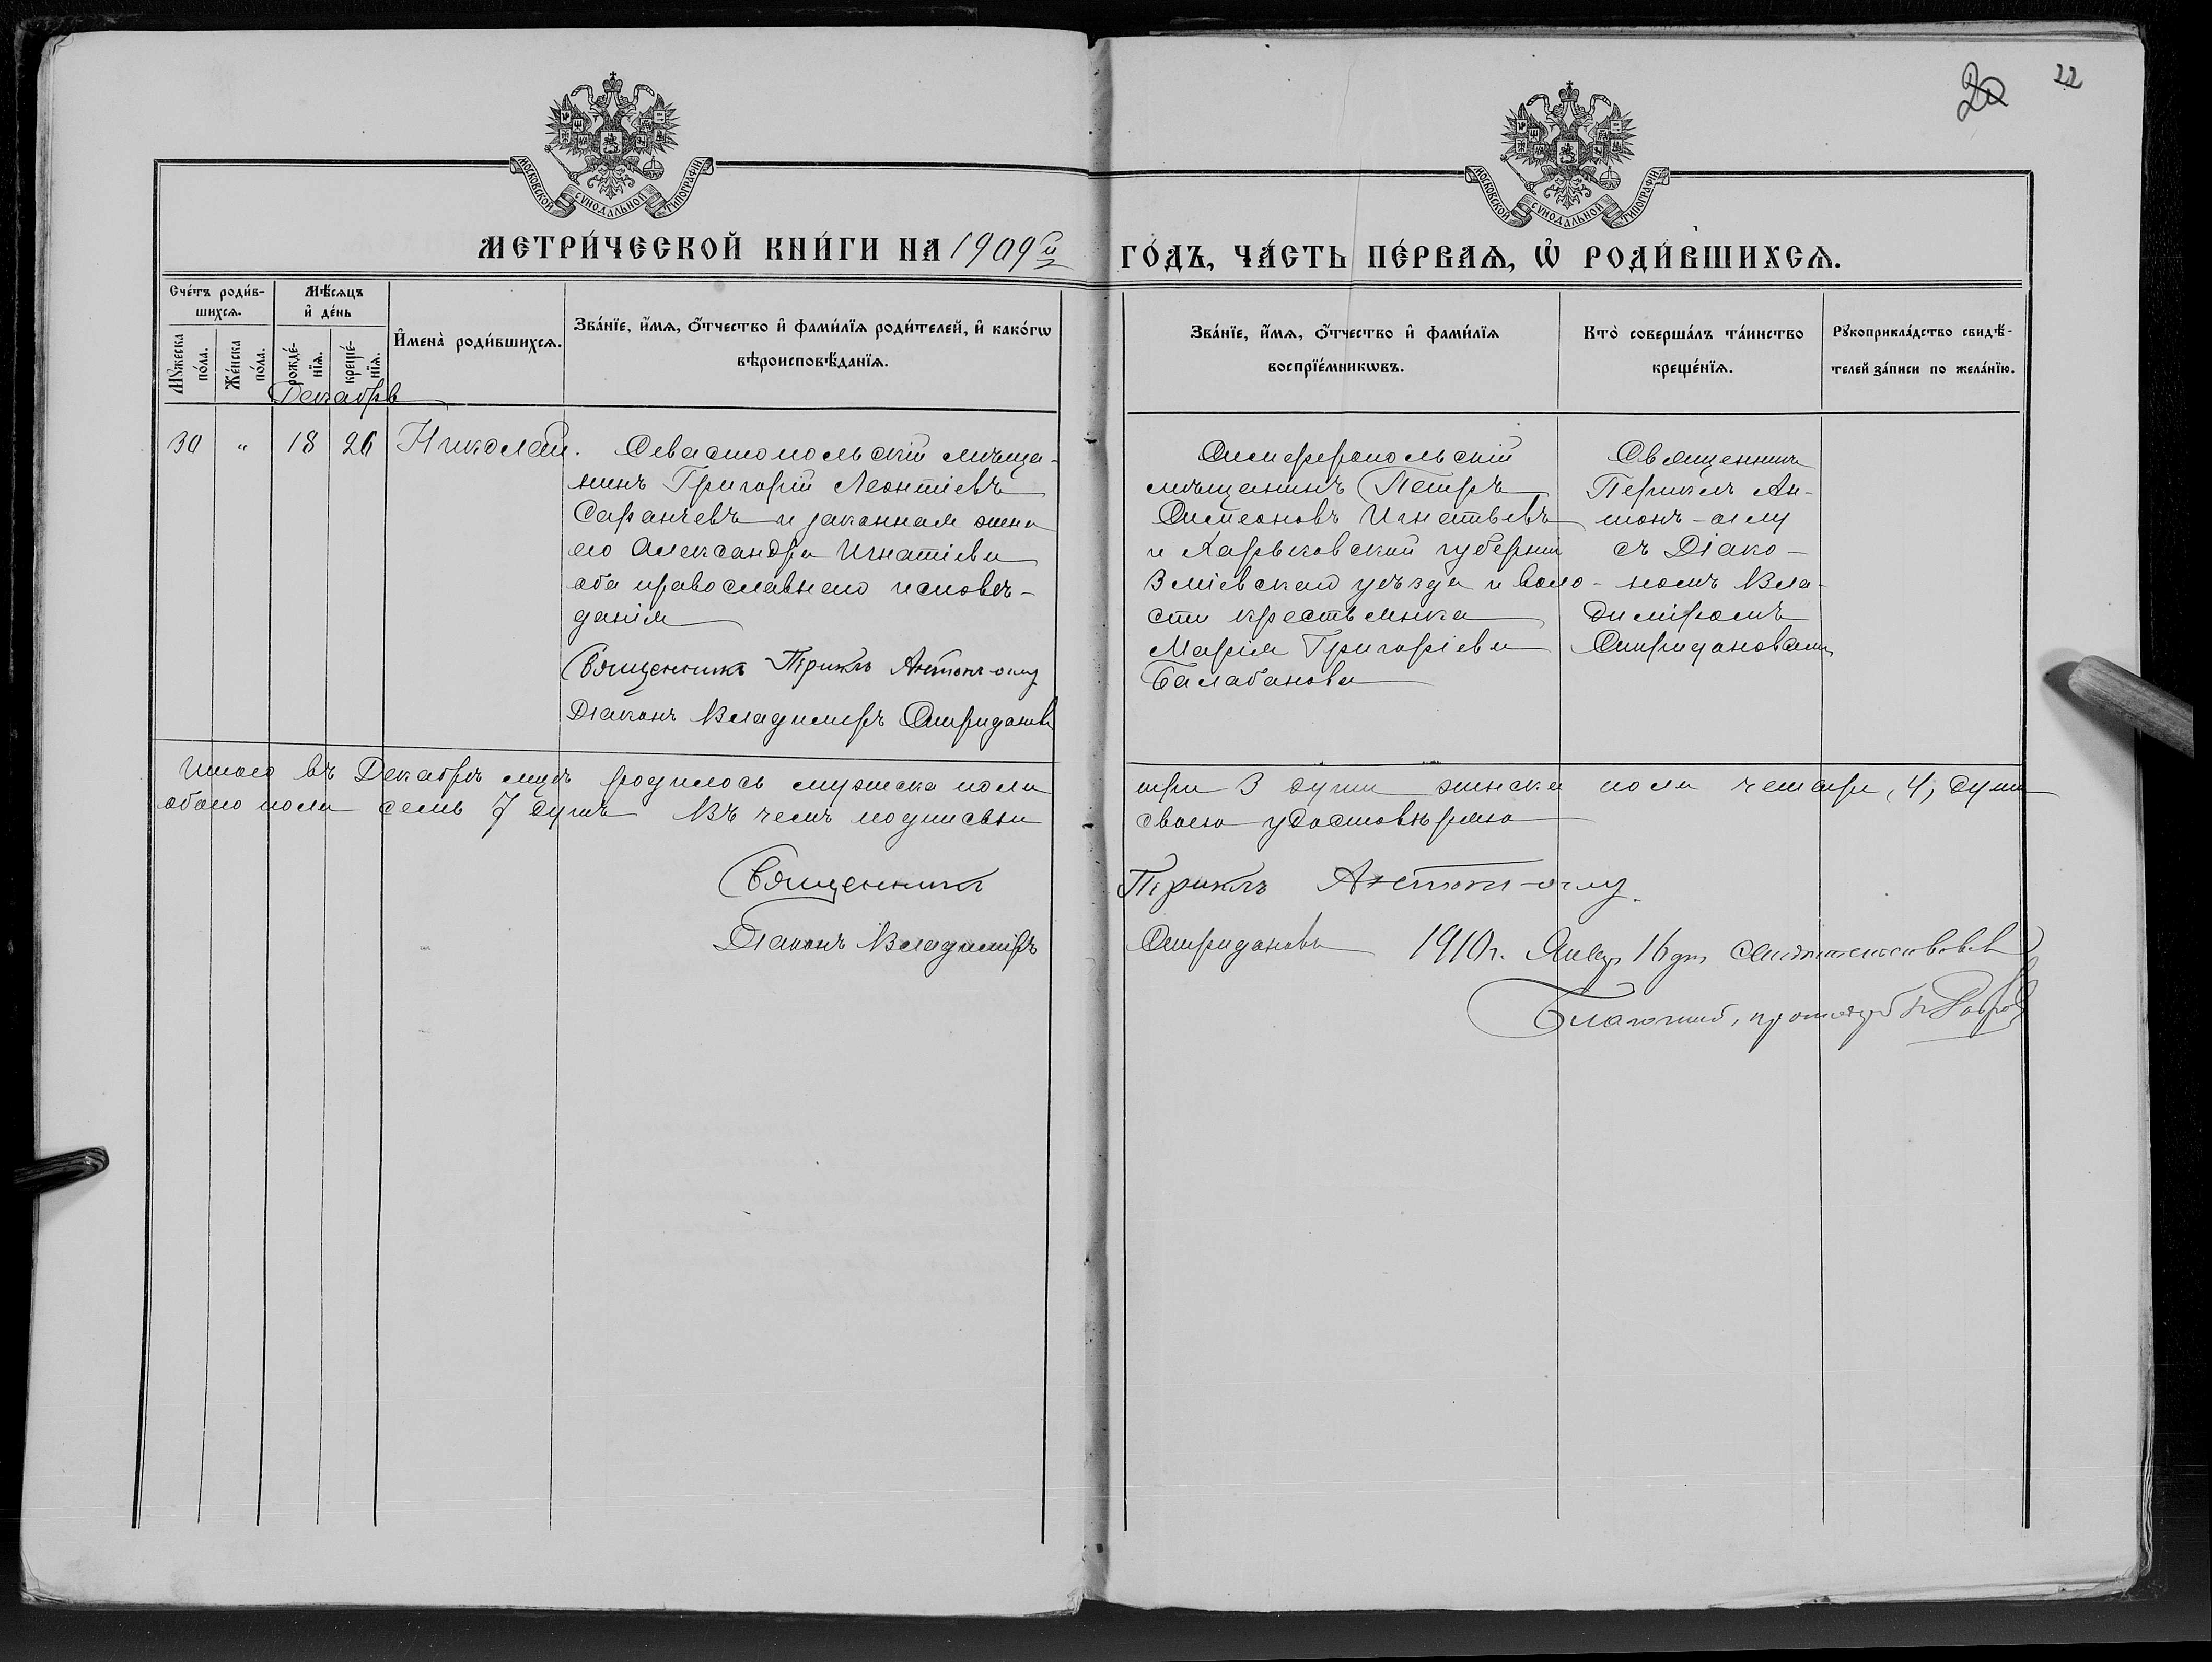 20 22
МОСКОВСКОЙ СѴНОДАЛЬНОЙ ТИПОГРАФІИ
МОСКОВСКОЙ СѴНОДАЛЬНОЙ ТИПОГРАФІИ
МЕТРИ́ЧЕСКОЙ КНИ́ГИ НА 1909й ГО́ДЪ, ЧА́СТЬ ПЕ́РВАѦ, Ѡ҆ РОДИ́ВШИХСѦ.
Сче́тъ роди́в-
шихсѧ.
Мꙋ́жеска по́ла.
Же́нска по́ла.
Мѣ́сѧцъ
и҆ де́нь
рожде́-
нїѧ.
креще́-
нїѧ.
И҆мена̀ роди́вшихсѧ.
Зва́нїе, и҆́мѧ, ѻ҆́тчество и҆ фами́лїѧ роди́телей, и҆ како́гѡ
вѣроисповѣ́данїѧ.
Зва́нїе, и҆́мѧ, ѻ҆́тчество и҆ фами́лїѧ
воспрїе́мникѡвъ.
Кто̀ соверша́лъ та́инство
креще́нїѧ.
Рꙋкоприкла́дство свидѣ́-
телей за́писи по жела́нїю.
Декабрь
30 " 18 26 Николай.
Севастопольскій мѣща-
нинъ Григорій Леонтіевъ
Саранчевъ и законная жена
его Александра Игнатіева
оба православнаго исповѣ-
данія
Священникъ Периклъ Антонъ-оглу
Діаконъ Владимиръ Спиридоновъ
Симферопольскій
мѣщанинъ Петръ
Симеоновъ Игнатьевъ
и Харьковской губерніи
Зміевскаго уѣзда и воло-
сти крестьянка
Марія Григоріева
Балабанова
Священникъ
Периклъ Ан-
тонъ-оглу
съ Діако-
номъ Вла-
диміромъ
Спиридоновымъ
Итого въ Декабрѣ мцѣ родилось мужска пола три 3 души женска пола четыре, 4, души
обоего пола семь 7 душъ Въ чемъ подписью своею удостовѣряю
Священникъ Периклъ Антонъ-оглу.
Діаконъ Владиміръ Спиридоновъ
1910 г. Янвр 16 дн свидѣтельствовалъ
Благочинный, протоіерей